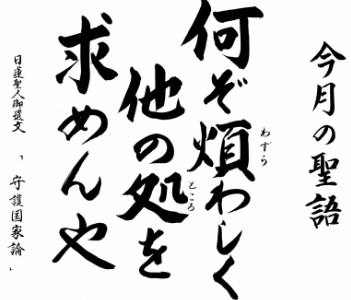 今月の聖語
何ぞ煩わしく
わずら
他の処を
ところ
求めんや
日蓮聖人御遺文
「守護国家論」